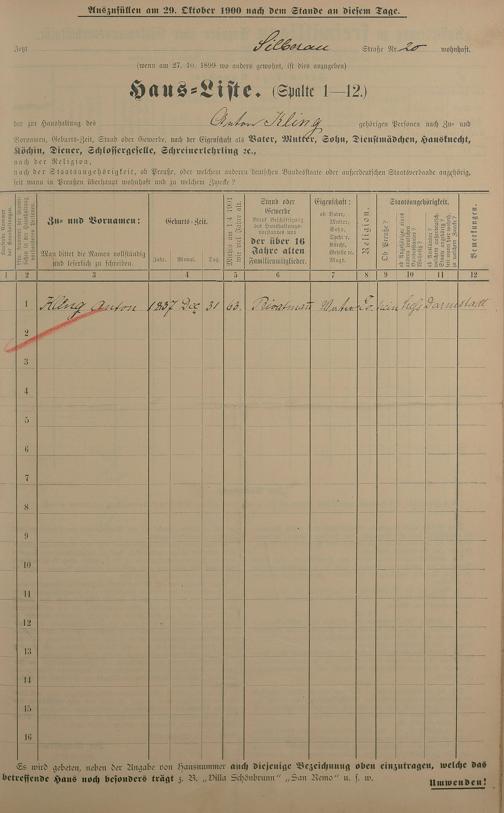 Auszufüllen am 29. Oktober 1900 nach dem Stande an diesem Tage.
Jetzt Straße Nr. 20 wohnhaft.
(wenn am 27. 10. 1899 wo anders gewohnt, ist dies anzugeben)
Haus-Liste. (Spalte 1—12.)
der zur Haushaltung des Anton Kling gehörigen Personen nach Zu- und
Vornamen, Geburts-Zeit, Stand oder Gewerbe, nach der Eigenschaft als Vater, Mutter, Sohn, Dienstmädchen, Hausknecht,
Köchin, Diener, Schlossergeselle, Schreinerlehrling ꝛc.,
nach der Religion,
nach der Staatsangehörigkeit, ob Preuße, oder welchem anderen deutschen Bundesstaate oder außerdeutschen Staatsverbande angehörig,
seit wann in Preußen überhaupt wohnhaft und zu welchem Zwecke?
Zu- und Vornamen:
Man bittet die Namen vollständig
und leserlich zu schreiben.
Geburts-Zeit.
Jahr. Monat. Tag.
Mithin am 1/4 1901
wie viel Jahre alt.
Stand oder
Gewerbe
der über 16
Jahre alten
Familienmitglieder.
Eigenschaft:
ob Vater,
Mutter,
Sohn,
Köchin,
Magd.
Religion.
Staatsangehörigkeit.
Ob Preuße?
Bemerkungen.
1 2 3 4 5 6 7 8 9 10 11 12
1 Kling Anton 1837 Dec 31 63. Privatmann Ev. nein Darmstadt
2
3
4
5
6
7
8
9
10
11
12
13
14
15
16
Es wird gebeten, neben der Angabe von Hausnummer auch diejenige Bezeichnung oben einzutragen, welche das
betreffende Haus noch besonders trägt z. B. „Villa Schönbrunn" „San Remo" u. s. w.
Umwenden!